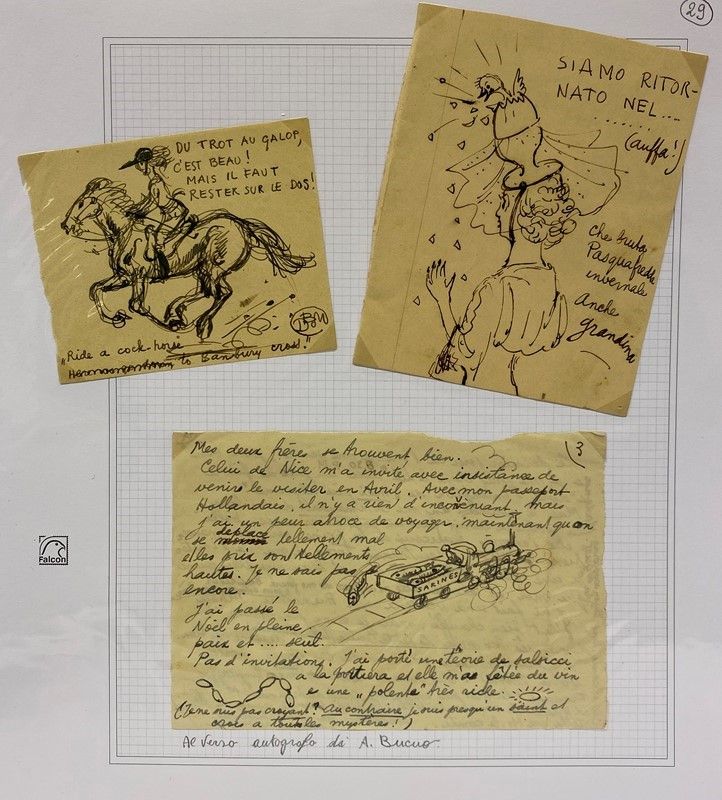 29
DU TROT AU GALOP,
C'EST BEAU!
MAIS IL FAUT
RESTER SUR LE DOS!
"Ride a cock-horse
to Banbury cross!"
SIAMO RITOR-
NATO NEL....
......
(auffa!)
che bruta
invernale
anche
grandina
3
Mes deux frères se trouvent bien.
Celui de Nice m'a invité avec insistance de
venire le visiter en Avril. Avec mon passeport
Hollandais, il n'y a rien d'inconveniant, mais
j'ai un peur atroce de voyager, maintenant qu'on
se déplace tellement mal
et les prix son tellements
hautes. Je ne sais pas
encore.
SARINES
J'ai passé le
Noël en pleine
paix et .... seul.
Pas d'invitations. J'ai porté une téorie de salsicci
a la portiera et elle m'as fêtée du vin
e une "polenta" très riche.
(Je ne suis pas croyant? Au contraire, je suis presqu'un saint et
crois a toutes les mystères!)
Falcon
Al verso autografo di A. Bucuo